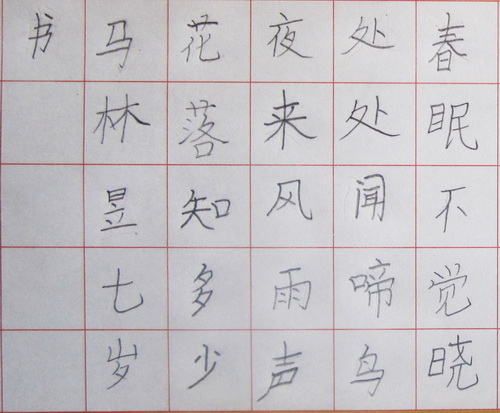 春眠不觉晓
处处闻啼鸟
夜来风雨声
花落知多少
马林昱七岁
书